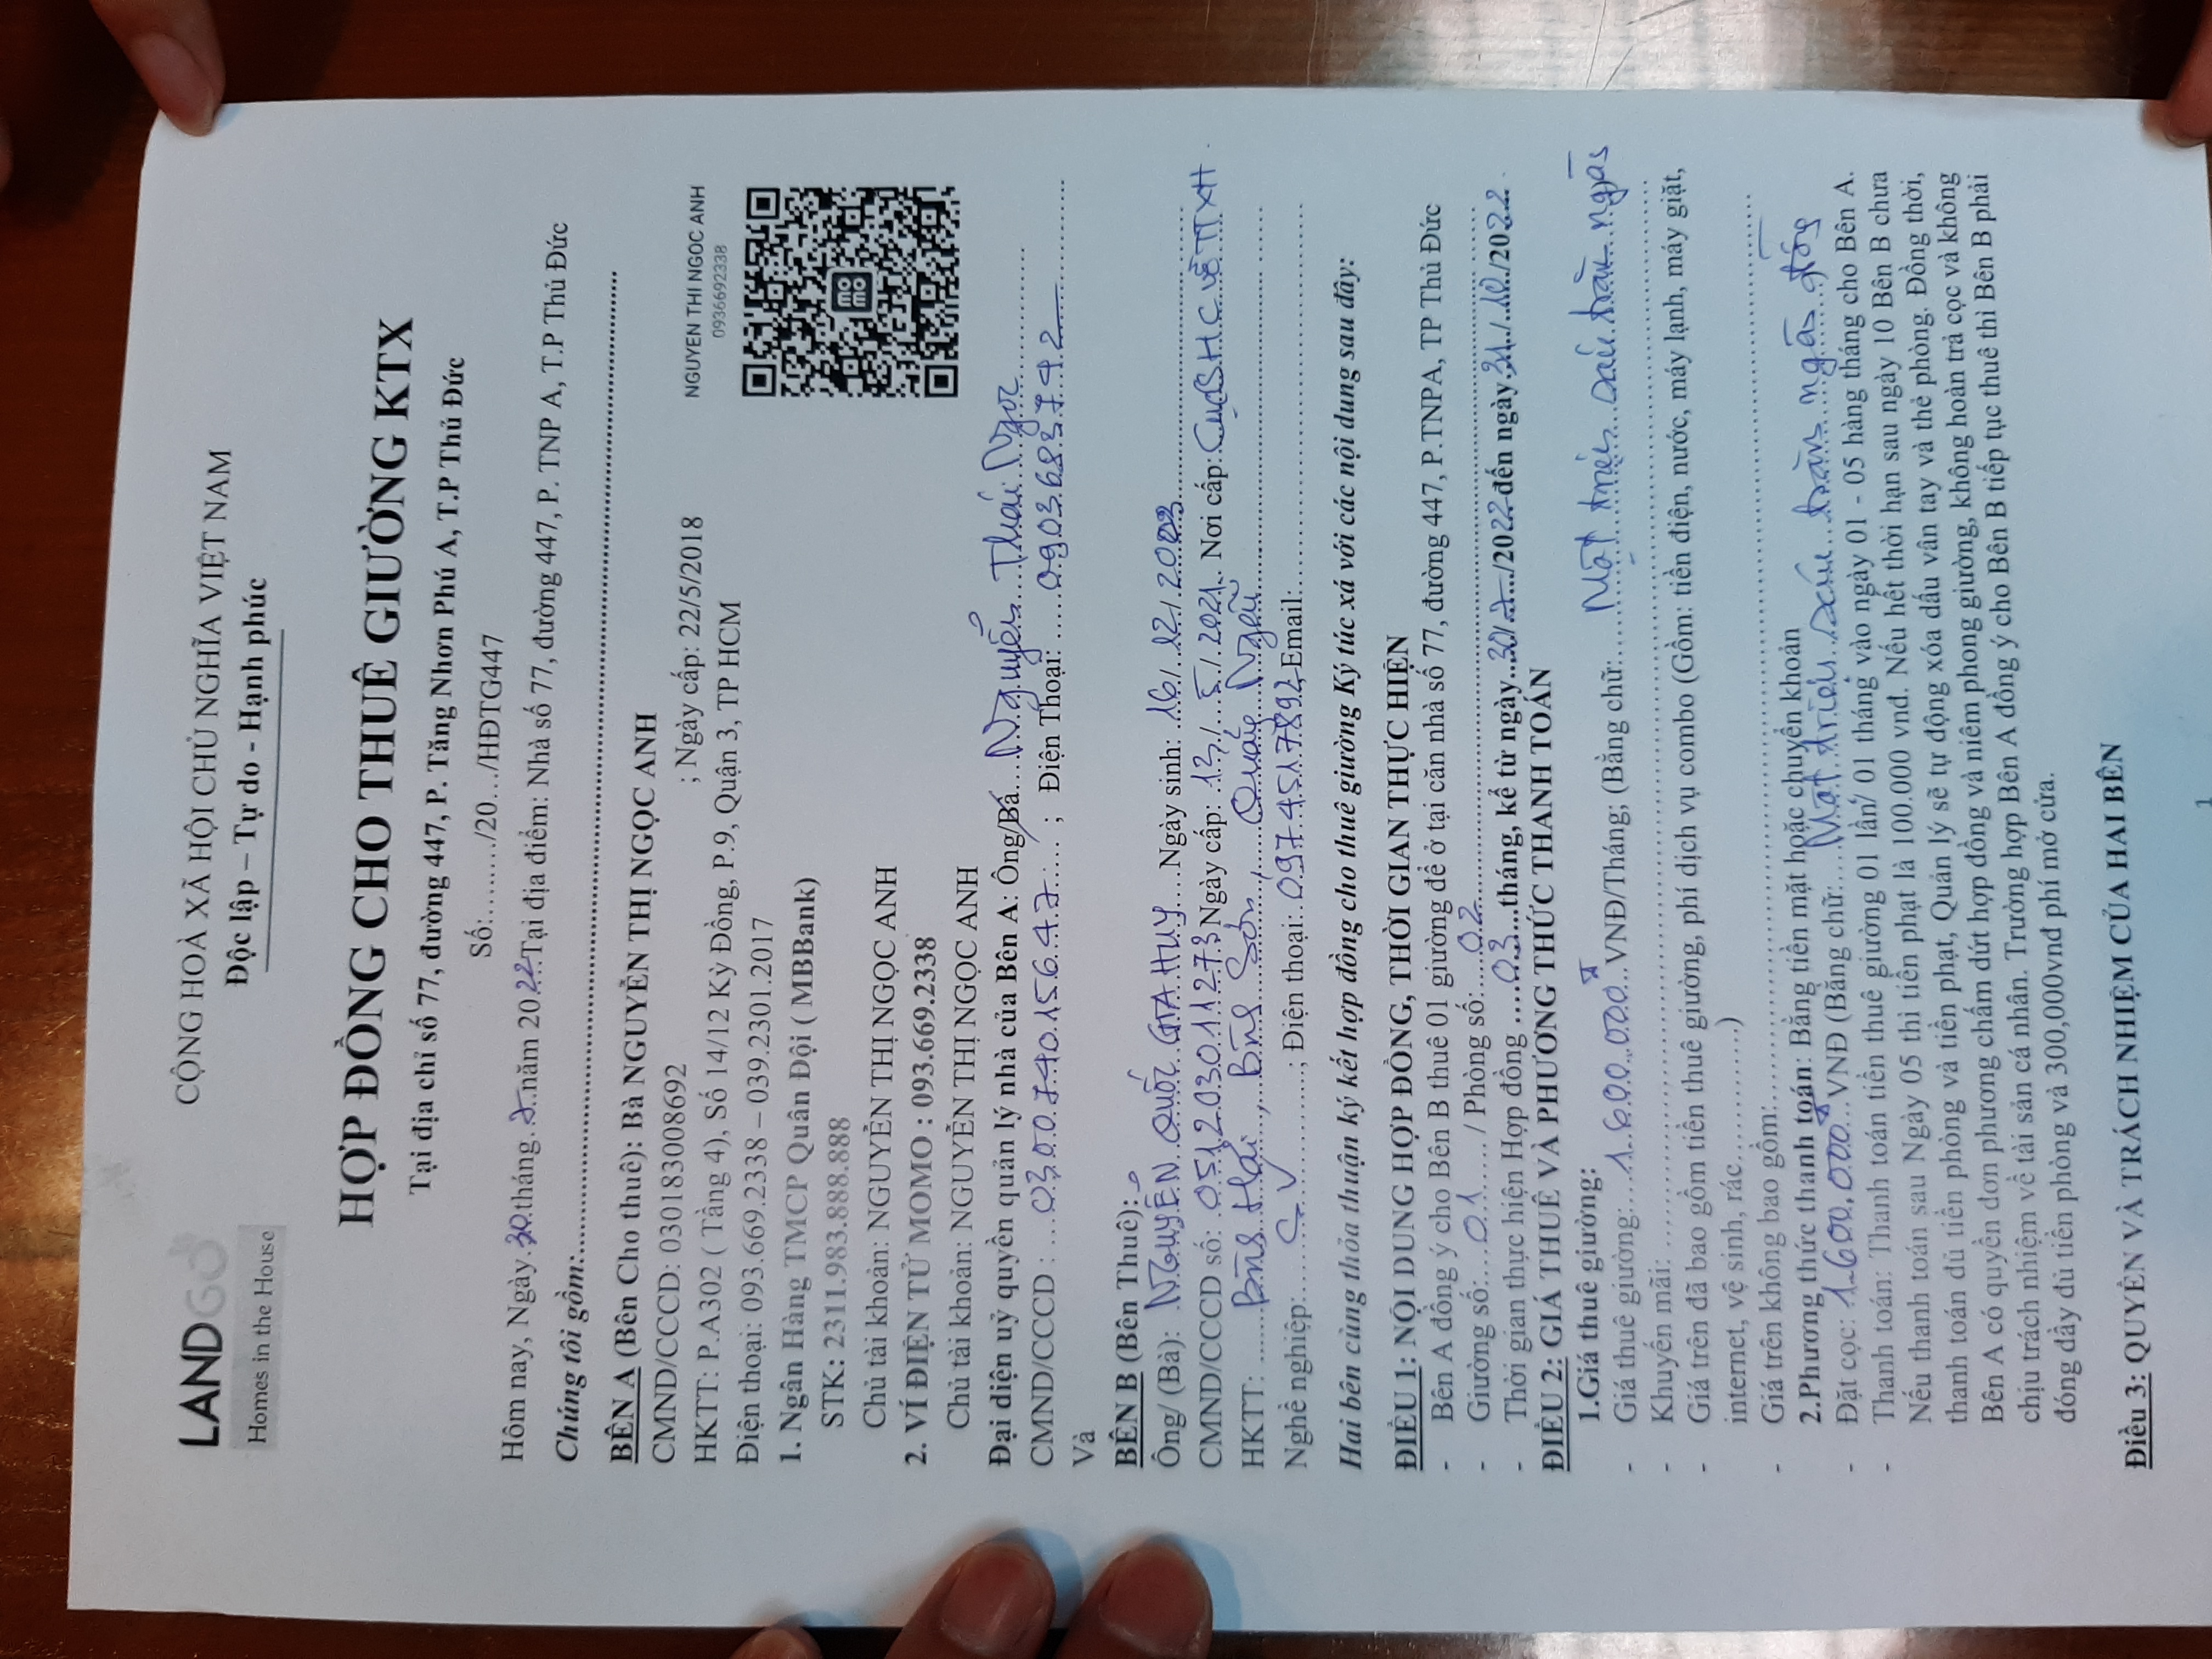 LANDGO
Homes in the House
CỘNG HOÀ XÃ HỘI CHỦ NGHĨA VIỆT NAM
Độc lập – Tự do - Hạnh phúc
HỢP ĐỒNG CHO THUÊ GIƯỜNG KTX
Tại địa chỉ số 77, đường 447, P. Tăng Nhơn Phú A, T.P Thủ Đức
Số:......../20…/HĐTG447
Hôm nay, Ngày 30 tháng 7 năm 2022 Tại địa điểm: Nhà số 77, đường 447, P. TNP A, T.P Thủ Đức
Chúng tôi gồm:
BÊN A (Bên Cho thuê): Bà NGUYỄN THỊ NGỌC ANH
CMND/CCCD: 030183008692 ; Ngày cấp: 22/5/2018
HKTT: P.A302 ( Tầng 4), Số 14/12 Kỳ Đồng, P.9, Quận 3, TP HCM
Điện thoại: 093.669.2338 – 039.2301.2017
1. Ngân Hàng TMCP Quân Đội ( MBBank)
STK: 2311.983.888.888
Chủ tài khoản: NGUYỄN THỊ NGỌC ANH
2. VÍ ĐIỆN TỬ MOMO : 093.669.2338
Chủ tài khoản: NGUYỄN THỊ NGỌC ANH
NGUYEN THI NGOC ANH
0936692338
momo
Đại diện uỷ quyền quản lý nhà của Bên A: Ông/Bà Nguyễn Thái Ngọc
CMND/CCCD : 030074015647 ; Điện Thoại: 0903683742
Và
BÊN B (Bên Thuê):
Ông/ (Bà): NGUYỄN QUỐC GIA HUY Ngày sinh: 16/12/2003
CMND/CCCD số: 051203011273 Ngày cấp: 13/5/2021 Nơi cấp: Cục SHC về TTXH
HKTT: Bình Hải, Bình Sơn, Quảng Ngãi
Nghề nghiệp: SV ; Điện thoại: 0974517892 Email:
Hai bên cùng thỏa thuận ký kết hợp đồng cho thuê giường Ký túc xá với các nội dung sau đây:
ĐIỀU 1: NỘI DUNG HỢP ĐỒNG, THỜI GIAN THỰC HIỆN
- Bên A đồng ý cho Bên B thuê 01 giường để ở tại căn nhà số 77, đường 447, P.TNPA, TP Thủ Đức
- Giường số: 01 / Phòng số: 02
- Thời gian thực hiện Hợp đồng 03 tháng, kể từ ngày 30/7/2022 đến ngày 31/10/2022
ĐIỀU 2: GIÁ THUÊ VÀ PHƯƠNG THỨC THANH TOÁN
1.Giá thuê giường:
- Giá thuê giường: 1.600.000đ VNĐ/Tháng; (Bằng chữ: Một triệu sáu trăm ngàn
- Khuyến mãi:
- Giá trên đã bao gồm tiền thuê giường, phí dịch vụ combo (Gồm: tiền điện, nước, máy lạnh, máy giặt,
internet, vệ sinh, rác................)
- Giá trên không bao gồm:
2.Phương thức thanh toán: Bằng tiền mặt hoặc chuyển khoản
- Đặt cọc: 1.600.000đ VNĐ (Bằng chữ: Một triệu sáu trăm ngàn đồng
- Thanh toán: Thanh toán tiền thuê giường 01 lần/ 01 tháng vào ngày 01 - 05 hàng tháng cho Bên A.
Nếu thanh toán sau Ngày 05 thì tiền phạt là 100.000 vnđ. Nếu hết thời hạn sau ngày 10 Bên B chưa
thanh toán đủ tiền phòng và tiền phạt, Quản lý sẽ tự động xóa dấu vân tay và thẻ phòng. Đồng thời,
Bên A có quyền đơn phương chấm dứt hợp đồng và niêm phong giường, không hoàn trả cọc và không
chịu trách nhiệm về tài sản cá nhân. Trường hợp Bên A đồng ý cho Bên B tiếp tục thuê thì Bên B phải
đóng đầy đủ tiền phòng và 300,000vnđ phí mở cửa.
Điều 3: QUYỀN VÀ TRÁCH NHIỆM CỦA HAI BÊN
1